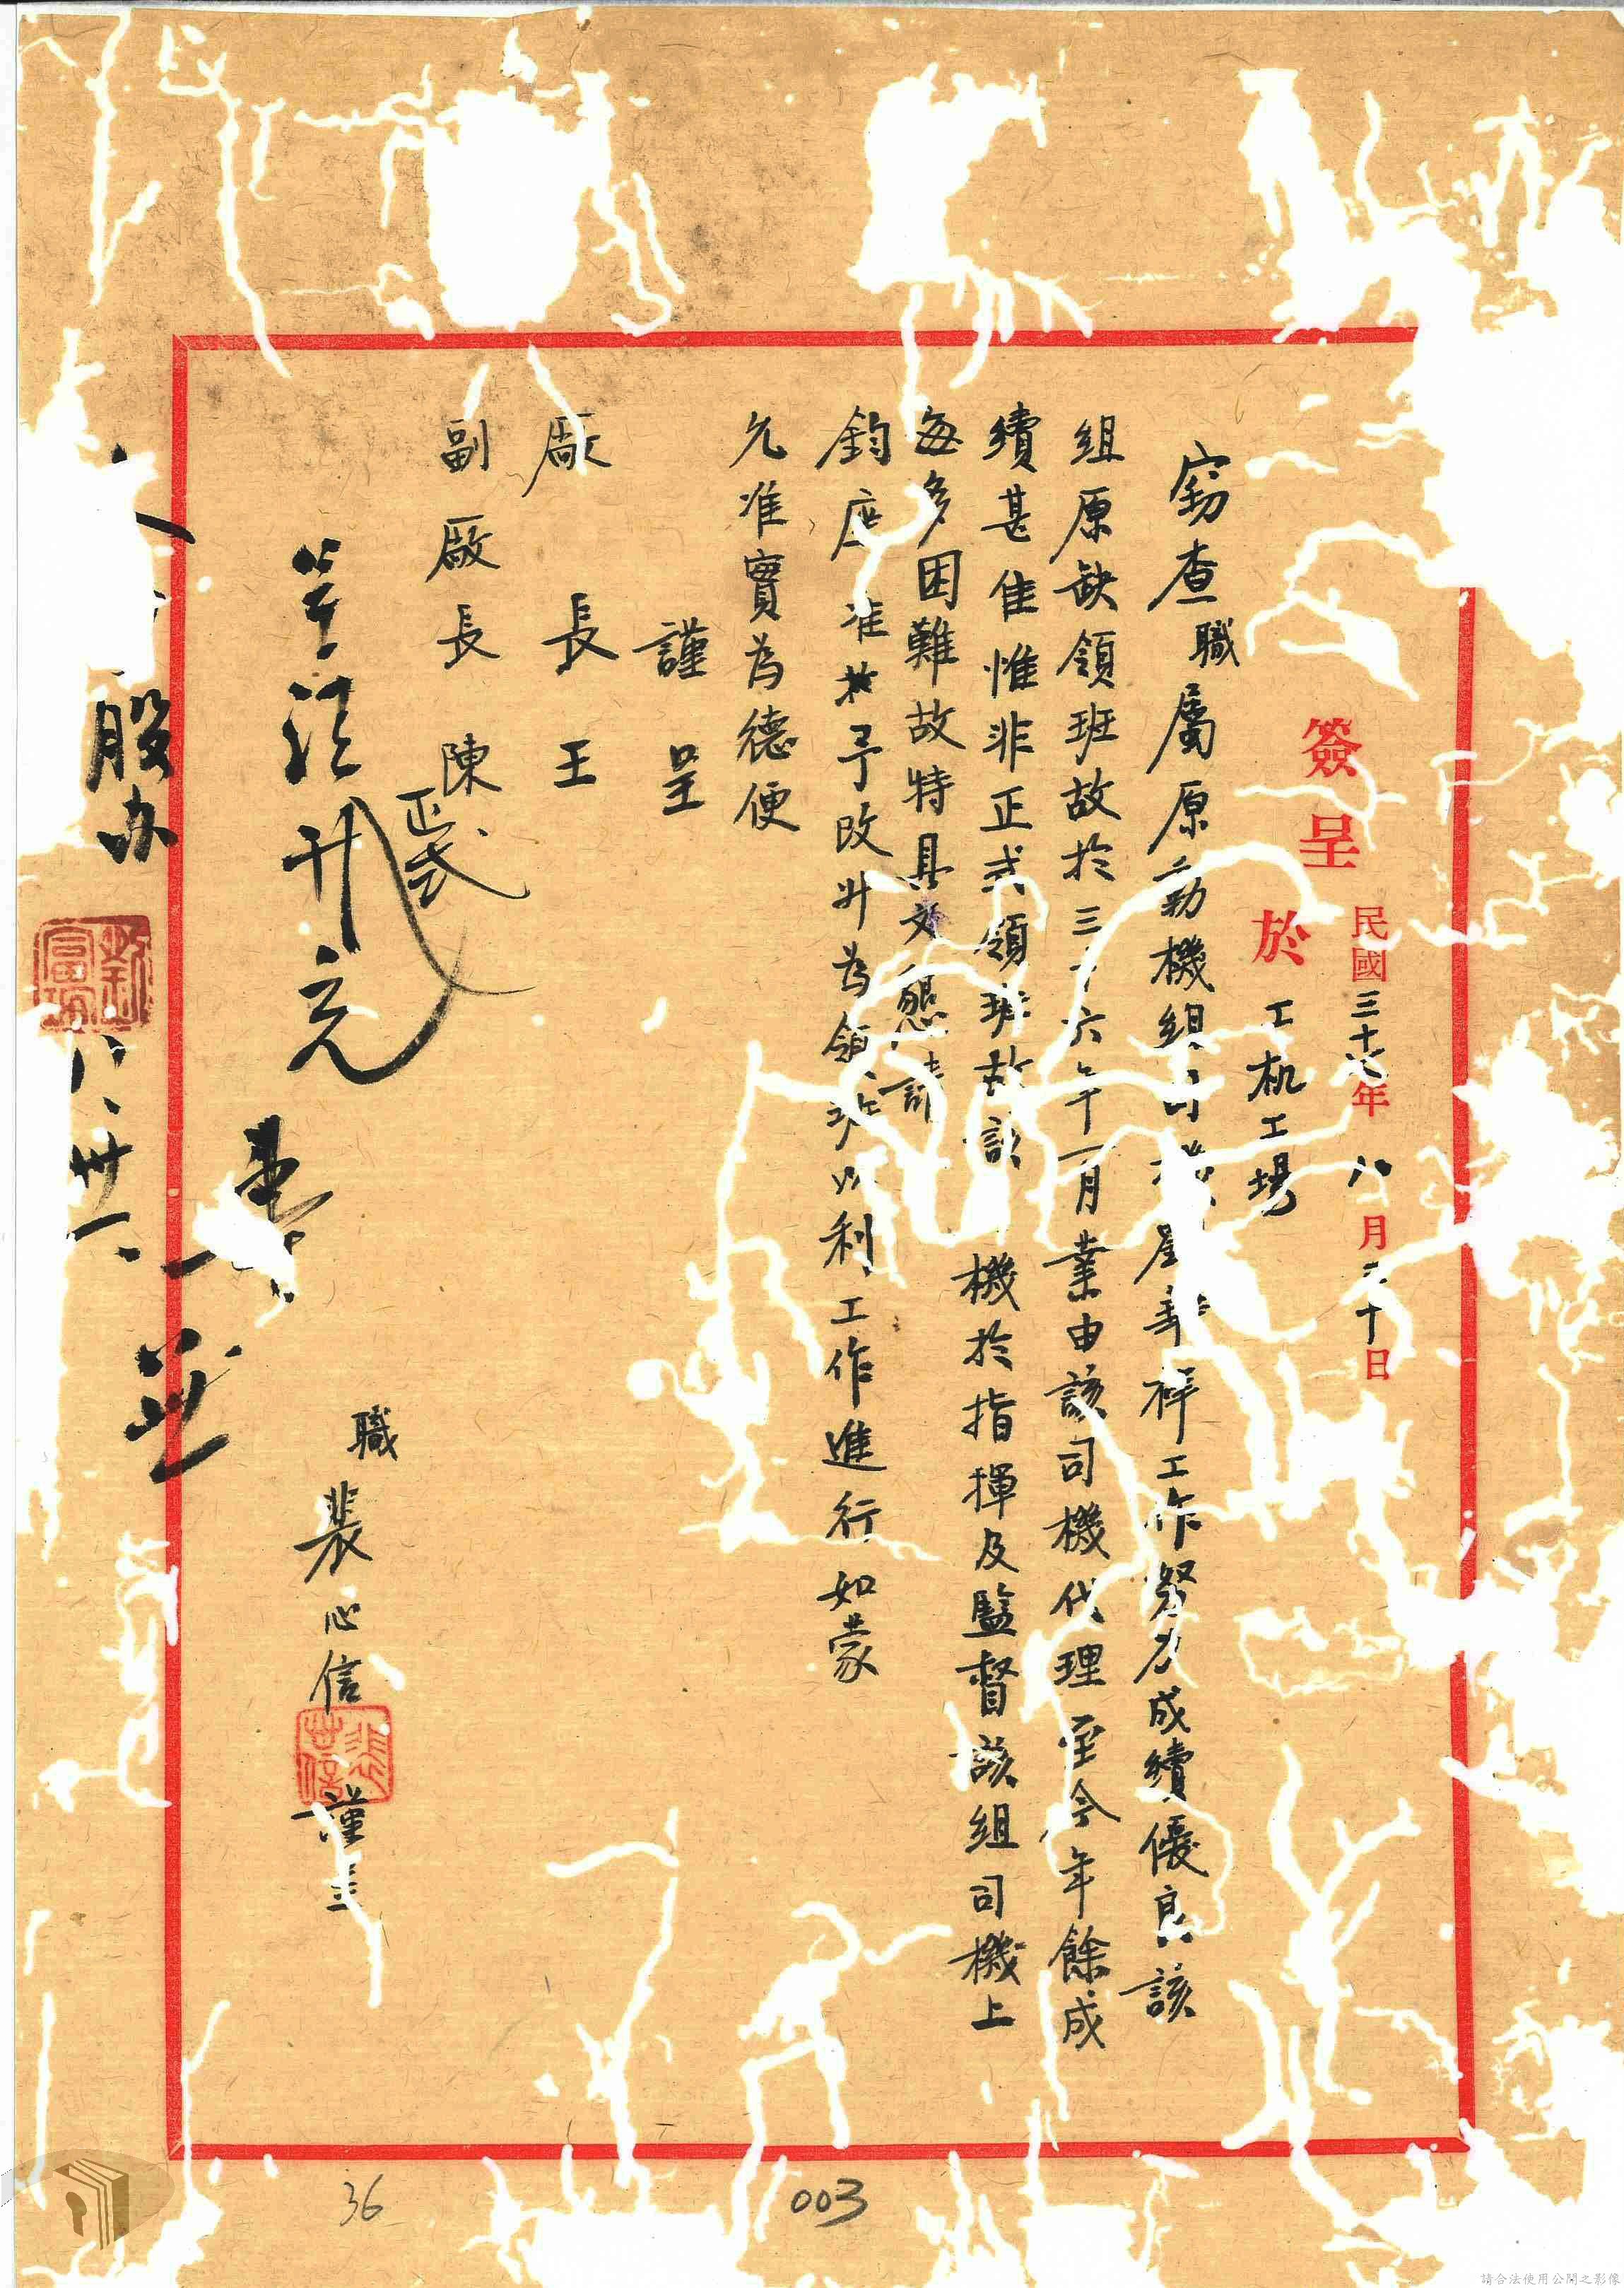 簽呈 民國三十七年八月三十日
於 工机工場
竊查職屬原動機組司機 祥工作努力成績優良該
組原缺領班故於三十六年一月業由該司機代理至今年餘成
績甚佳惟非正式領班故該 機於指揮及監督該組司機上
每多困難故特具文懇請
鈞座准於予改升為領班以利工作進行如蒙
允准實為德便
謹呈
廠長王
副廠長陳
職 裴心信 謹呈
股办
八、卅一、
36
003
請合法使用公開之影像